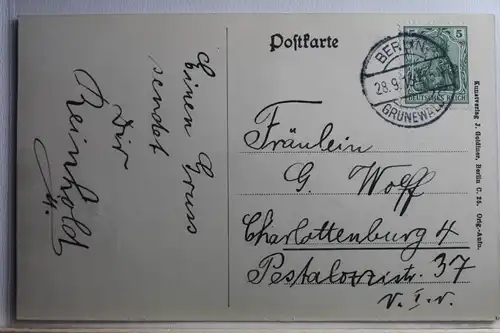 Postkarte
5 5
DEUTSCHES REICH
BERLIN
28.9.
GRUNEWALD
Einen Gruss
sendet
Dir
Reinhold
Fräulein
G. Wolff
Charlottenburg 4
Pestalozzistr. 37
v. I. r.
Kunstverlag J. Goldiner, Berlin C. 25. Orig.-Aufn.